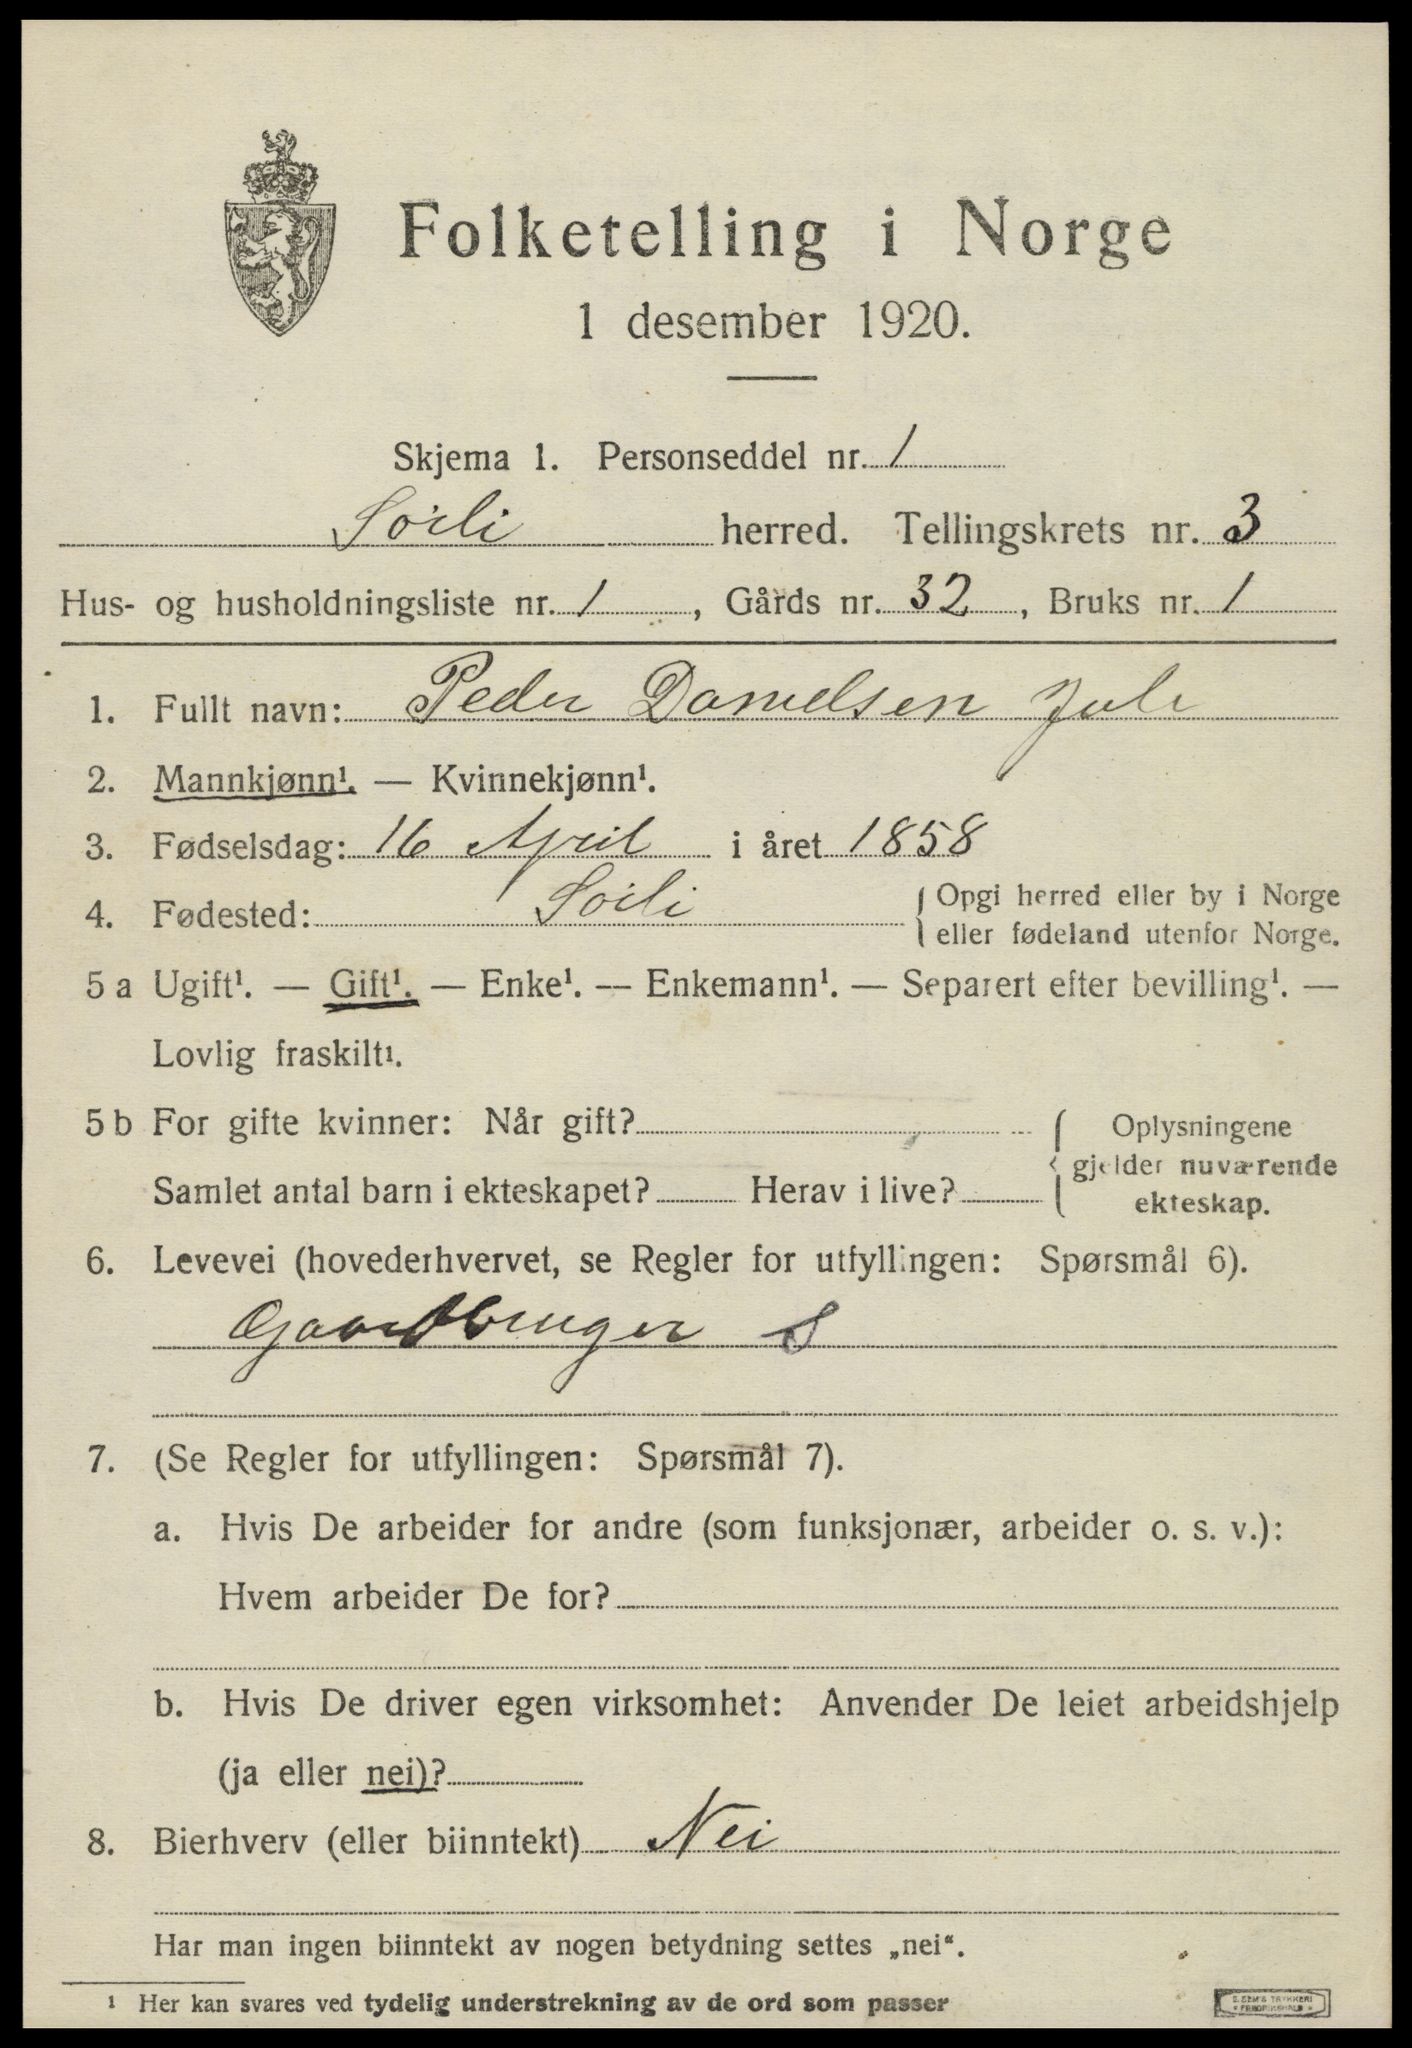 Folketelling i Norge
1 desember 1920.
Skjema 1. Personseddel nr. 1
Sörli herred. Tellingskrets nr. 3
Hus- og husholdningsliste nr. 1, Gårds nr. 32, Bruks nr. 1
1. Fullt navn: Peder Danielsen Jule
2. Mannkjønn¹. — Kvinnekjønn¹.
3. Fødselsdag: 16 April i året 1858
4. Fødested: Sörli { Opgi herred eller by i Norge
eller fødeland utenfor Norge.
5 a Ugift¹. — Gift¹. — Enke¹. — Enkemann¹. — Separert efter bevilling¹. —
Lovlig fraskilt¹.
5 b For gifte kvinner: Når gift? { Oplysningene
gjelder nuværende
Samlet antal barn i ekteskapet? Herav i live? ekteskap.
6. Levevei (hovederhvervet, se Regler for utfyllingen: Spørsmål 6).
Gaardbruger S
7. (Se Regler for utfyllingen: Spørsmål 7).
a. Hvis De arbeider for andre (som funksjonær, arbeider o. s. v.):
Hvem arbeider De for?
b. Hvis De driver egen virksomhet: Anvender De leiet arbeidshjelp
(ja eller nei)?
8. Bierhverv (eller biinntekt) Nei
Har man ingen biinntekt av nogen betydning settes „nei“.
¹ Her kan svares ved tydelig understrekning av de ord som passer
E. SEM'S TRYKKERI
• FREDRIKSHALD •